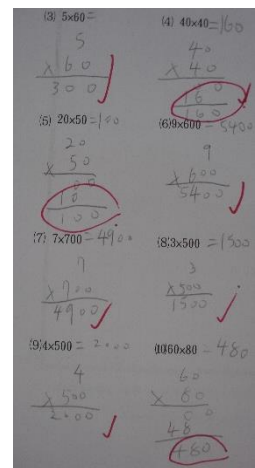 (3) 5x60=
5
x 60
300
(4) 40x40=160
40
x 40
160
160
(5) 20x50=100
20
x 50
00
10
100
(6)9x600=5400
9
x600
5400
(7) 7x700=4900
7
x700
4900
(8)3x500=1500
3
x500
1500
(9)4x500=2000
4
x 500
2000
(10)60x80=480
60
x 80
00
48
480